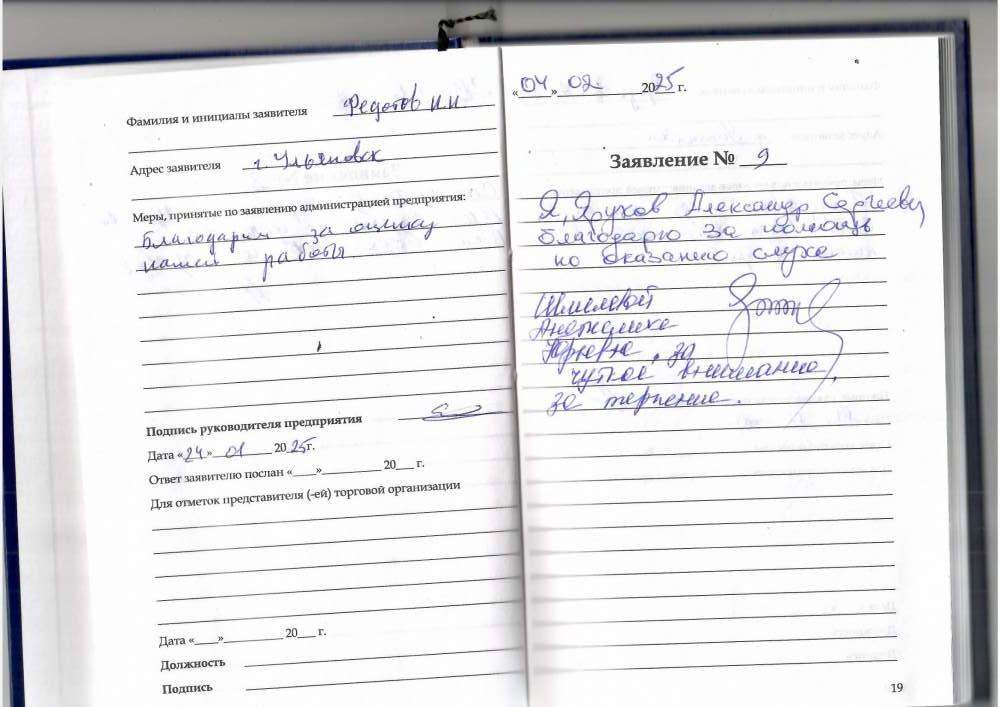 Фамилия и инициалы заявителя Федотов Н.Н.
Адрес заявителя г. Ульяновск
Меры, принятые по заявлению администрацией предприятия:
Благодарим за оценку
нашей работы
Подпись руководителя предприятия
Дата «24» 01 2025г.
Ответ заявителю послан «___»_________ 20___ г.
Для отметок представителя (-ей) торговой организации
Дата «___»_________ 20___ г.
Должность
Подпись
«04» 02. 2025 г.
Заявление № 9
Я, Александр Сергеевич
благодарю за помощь
по оказанию слуха
Шмелевой
Анжелике
Юрьевне, за
чуткое внимание,
за терпение.
19